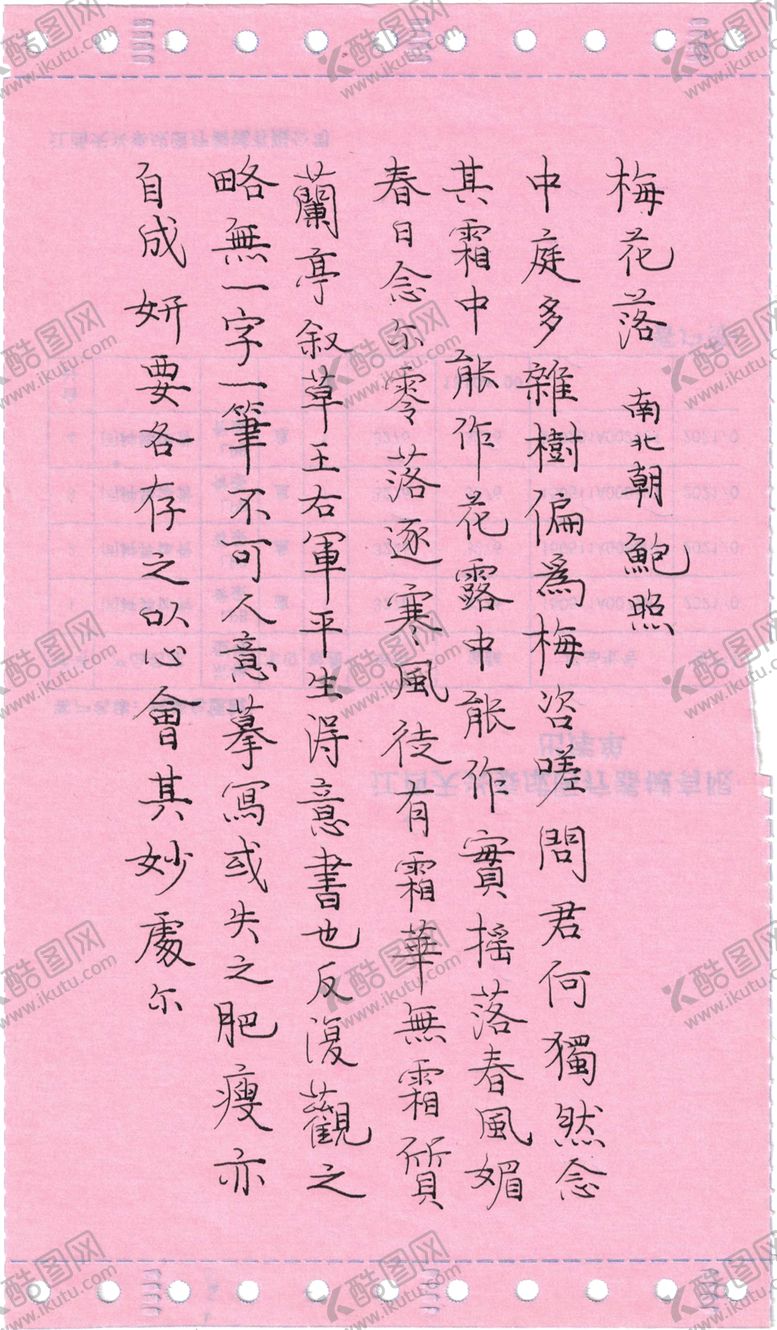 梅花落 南北朝鮑照
中庭多雜樹偏爲梅咨嗟問君何獨然念
其霜中能作花露中能作實摇落春風媚
春日念尔零落逐寒風徒有霜華無霜質
蘭亭叙草王右軍平生淂意書也反復觀之
略無一字一筆不可人意摹寫或失之肥瘦亦
自成妍要各存之以心會其妙處尔
酷图网
www.ikutu.com